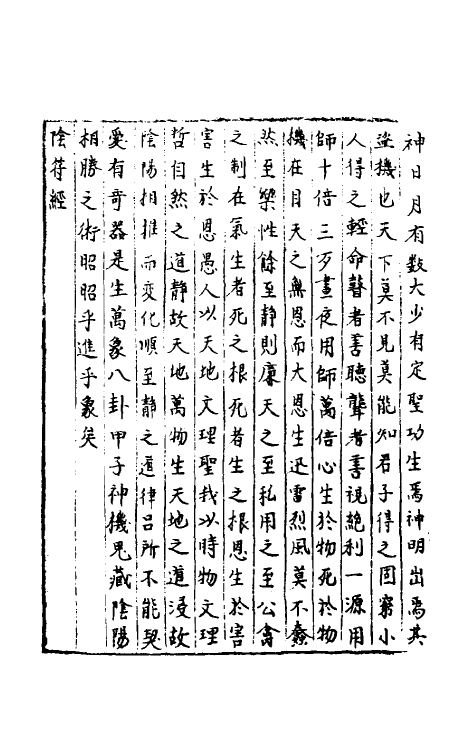 神日月有數大少有定聖功生焉神明出焉其
盜機也天下莫不見莫能知君子得之固窮小
人得之輕命瞽者善聽聾者善視絶利一源用
師十倍三歹晝夜用師萬倍心生於物死於物
機在目天之無恩而大恩生迅雷烈風莫不蠢
然至樂性餘至靜則廉天之至私用之至公禽
之制在氣生者死之根死者生之根恩生於害
害生於恩愚人以天地文理聖我以時物文理
哲自然之道靜故天地萬物生天地之道浸故
陰陽相推而變化順至靜之道律吕所不能契
爰有奇器是生萬象八卦甲子神機鬼藏陰陽
相勝之術昭昭乎進乎象矣
陰符經